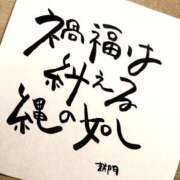 禍福は
糾える
縄の如し